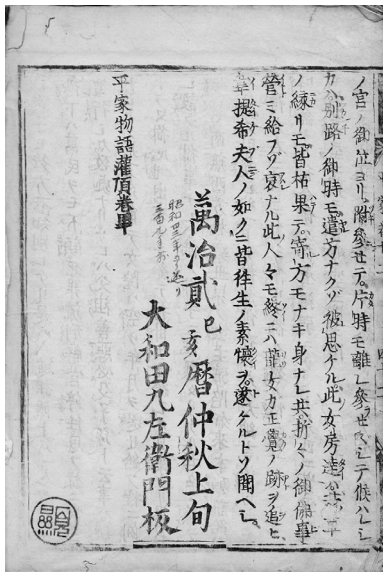 ノ宮ノ御位ヨリ附參セテ片時モ離レ參セスシテ候ハレシ
カハ別路ノ御時モ遣方ナクゾ被思ケル此女房達ハ昔ノ草
ノ縁リモ皆枯果テ寄方モナキ身ナレ共折々ノ御佛事
營ミ給フゾ哀ナル此人々モ終ニハ龍女カ正覺ノ跡ヲ追ヒ
韋提希夫人ノ如クニ皆往生ノ素懷ヲ遂ケルトソ聞ヘシ
平家物語灌頂卷畢
萬治貳己亥曆仲秋上旬
昭和四三年ヨリ
大和田九左衛門板